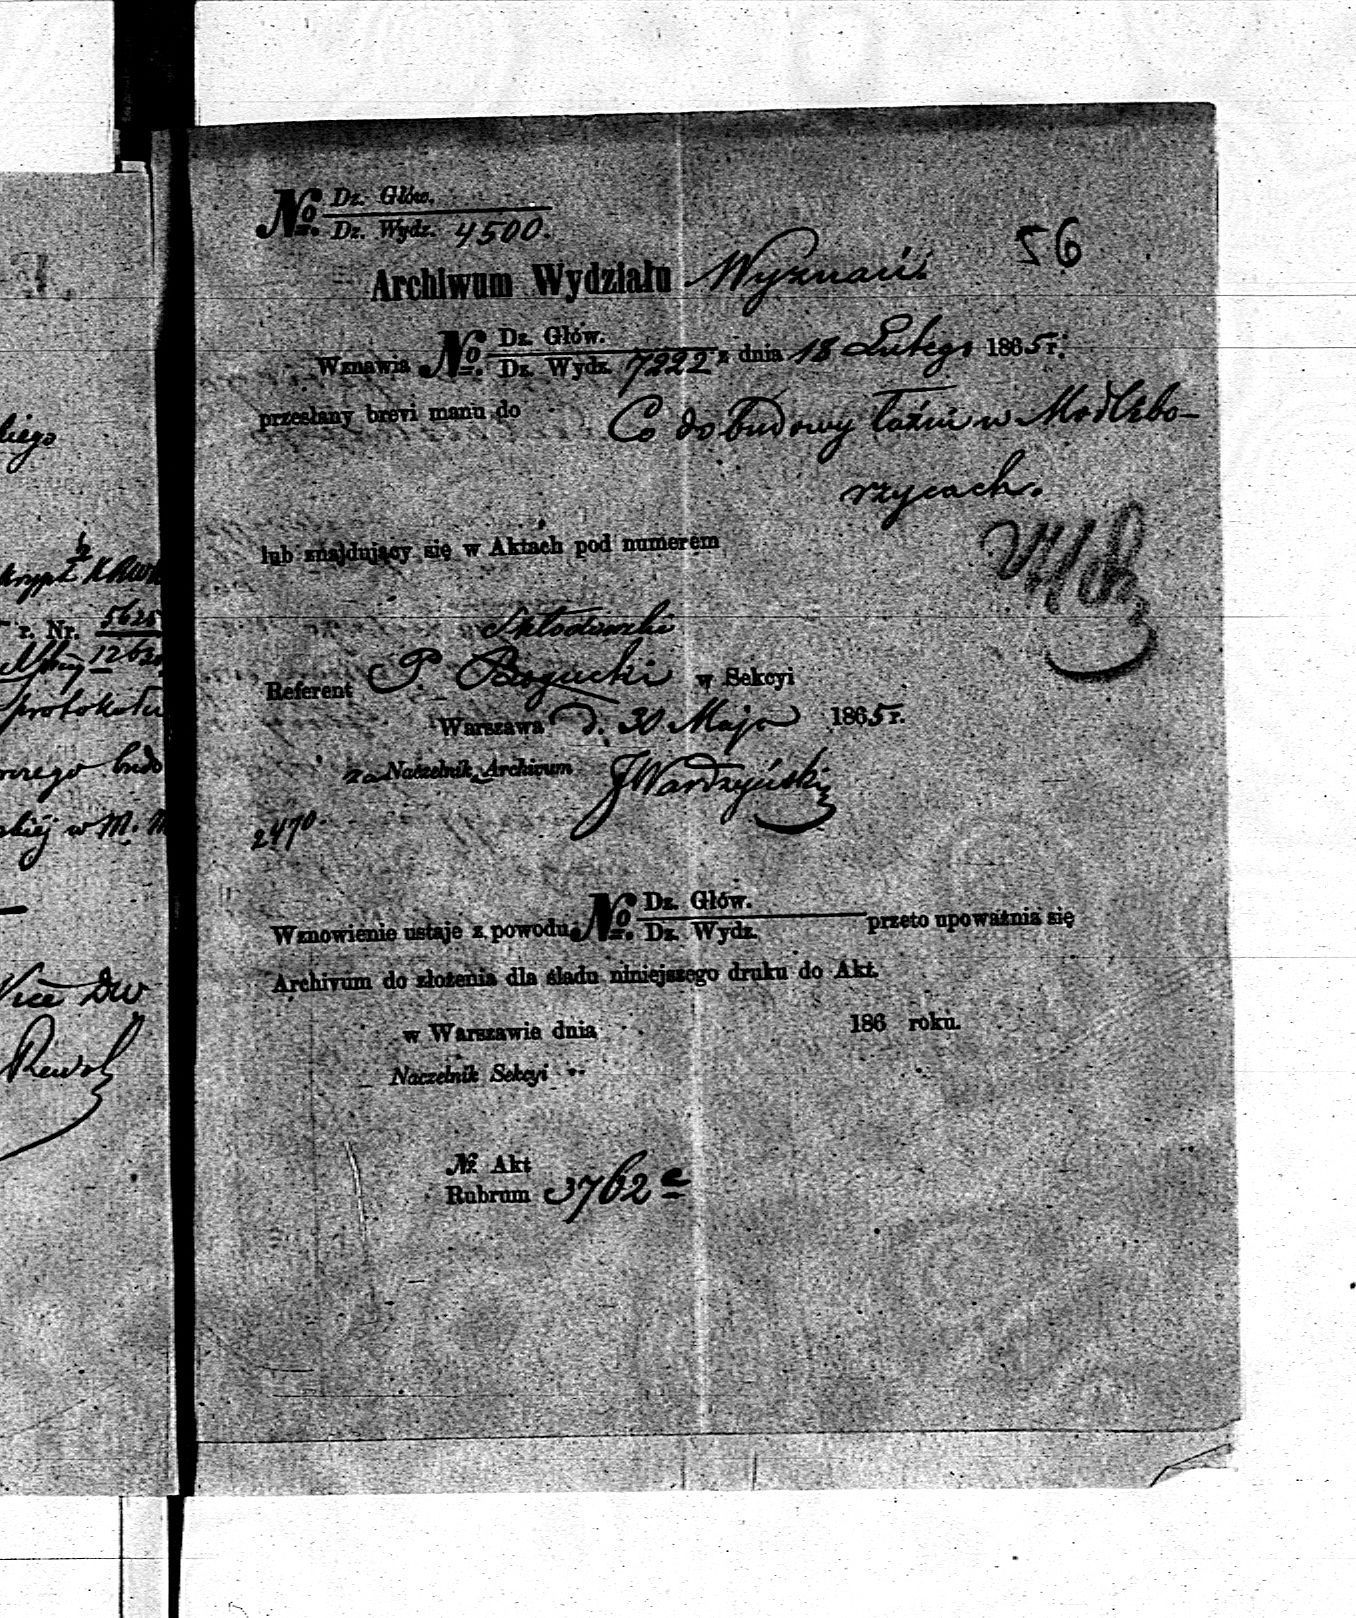 kiego
5625
r. Nr.
protokołu
skiéj w M. M
Vice Dw
№. Dz. Głów.
Dz. Wydz. 4500.
56
Archiwum Wydziału Wyznań.
Wznawia №. Dz. Głów.
Dz. Wydz. 7222 z dnia 18 Lutego 1865 r.
przesłany brevi manu do Co do budowy łaźni w Modlibo-
rzycach.
lub znajdujący się w Aktach pod numerem
Skłodowski
Referent P Bogucki w Sekcyi
Warszawa d. 30 Maja 1865 r.
za Naczelnik Archivum JWardzyński
2470.
Wznowienie ustaje z powodu №. Dz. Głów.
Dz. Wydz. przeto upoważnia się
Archivum do złożenia dla śladu niniejszego druku do Akt.
w Warszawie dnia 186 roku.
Naczelnik Sekcyi
№ Akt
Rubrum 3762 c